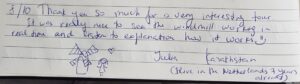 8/10 Thank you so much for a very interesting tour
It was really nice to see the windmill works in
real time and listen to explanation how it works!!
Julia Kazakhstan
(I live in the Netherlands 4 years
already)